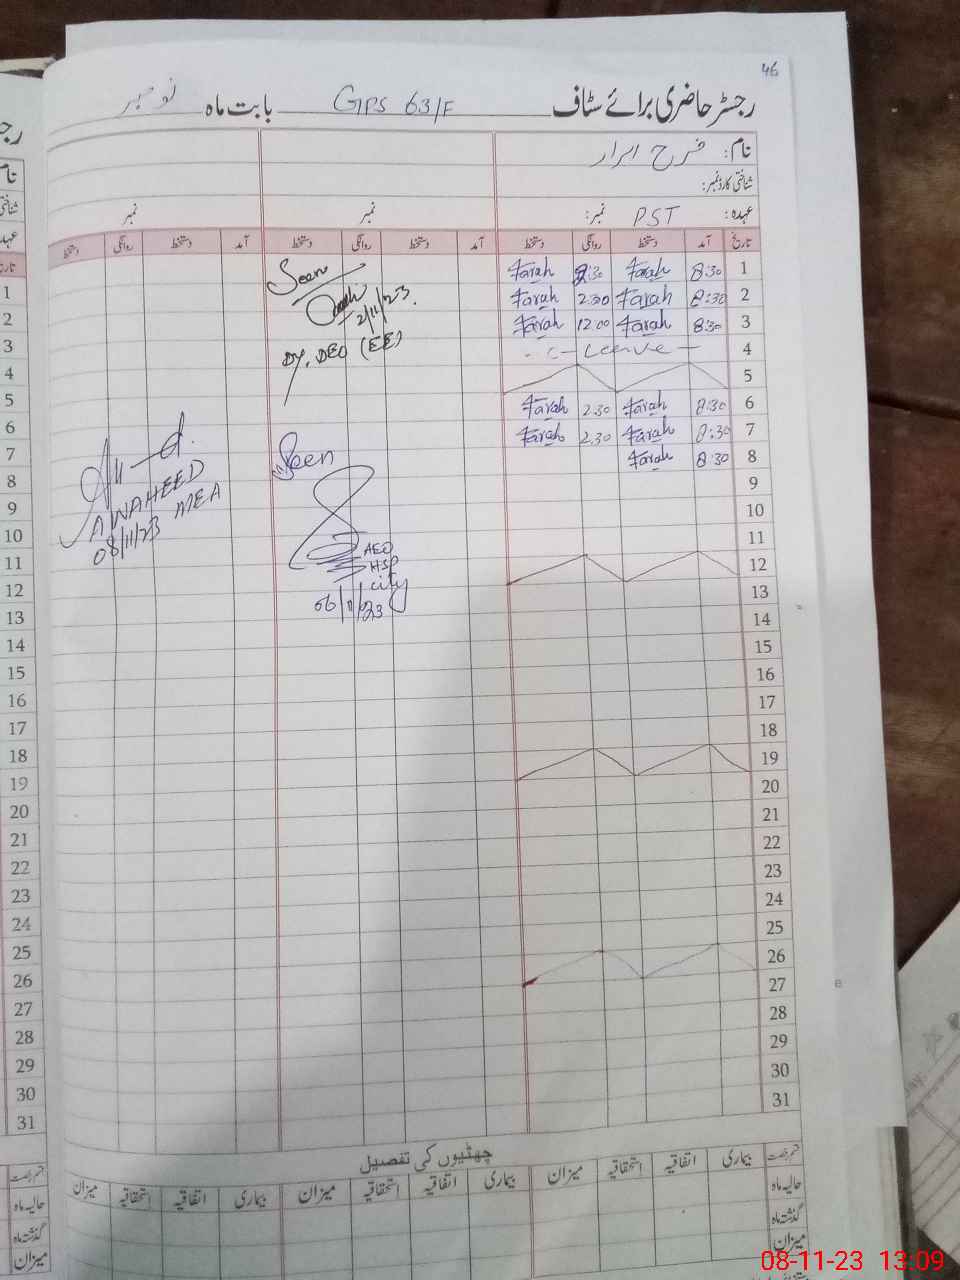 46
رجسٹر حاضری برائے سٹاف GPS 63/F بابت ماہ نومبر
نام: فرح ابرار
شناختی کارڈ نمبر:
عہدہ: PST نمبر: نمبر نمبر
تاریخ آمد دستخط روانگی دستخط آمد دستخط روانگی دستخط آمد دستخط روانگی دستخط
1 8:30 Farah 2:30 Farah
2 8:30 Farah 2:30 Farah
3 8:30 Farah 12:00 Farah
4 - C - Leave -
5
6 8:30 Farah 2.30 Farah
7 8:30 Farah 2.30 Farah
8 8:30 Farah
9
10
11
12
13
14
15
16
17
18
19
20
21
22
23
24
25
26
27
28
29
30
31
Seen
2/11/23.
DY. DEO (EE)
Seen
AEO
HSP
city
06/11/23
A WAHEED
08/11/23 MEA
چھٹیوں کی تفصیل
قسم رخصت بیماری اتفاقیہ استحقاقیہ میزان بیماری اتفاقیہ استحقاقیہ میزان بیماری اتفاقیہ استحقاقیہ میزان
حالیہ ماہ
گذشتہ ماہ
میزان
رجـ
نام
شناختی
عہد
تار
1
2
3
4
5
6
7
8
9
10
11
12
13
14
15
16
17
18
19
20
21
22
23
24
25
26
27
28
29
30
31
قسم رخصت
حالیہ ماہ
گذشتہ ماہ
میزان
08-11-23 13:09